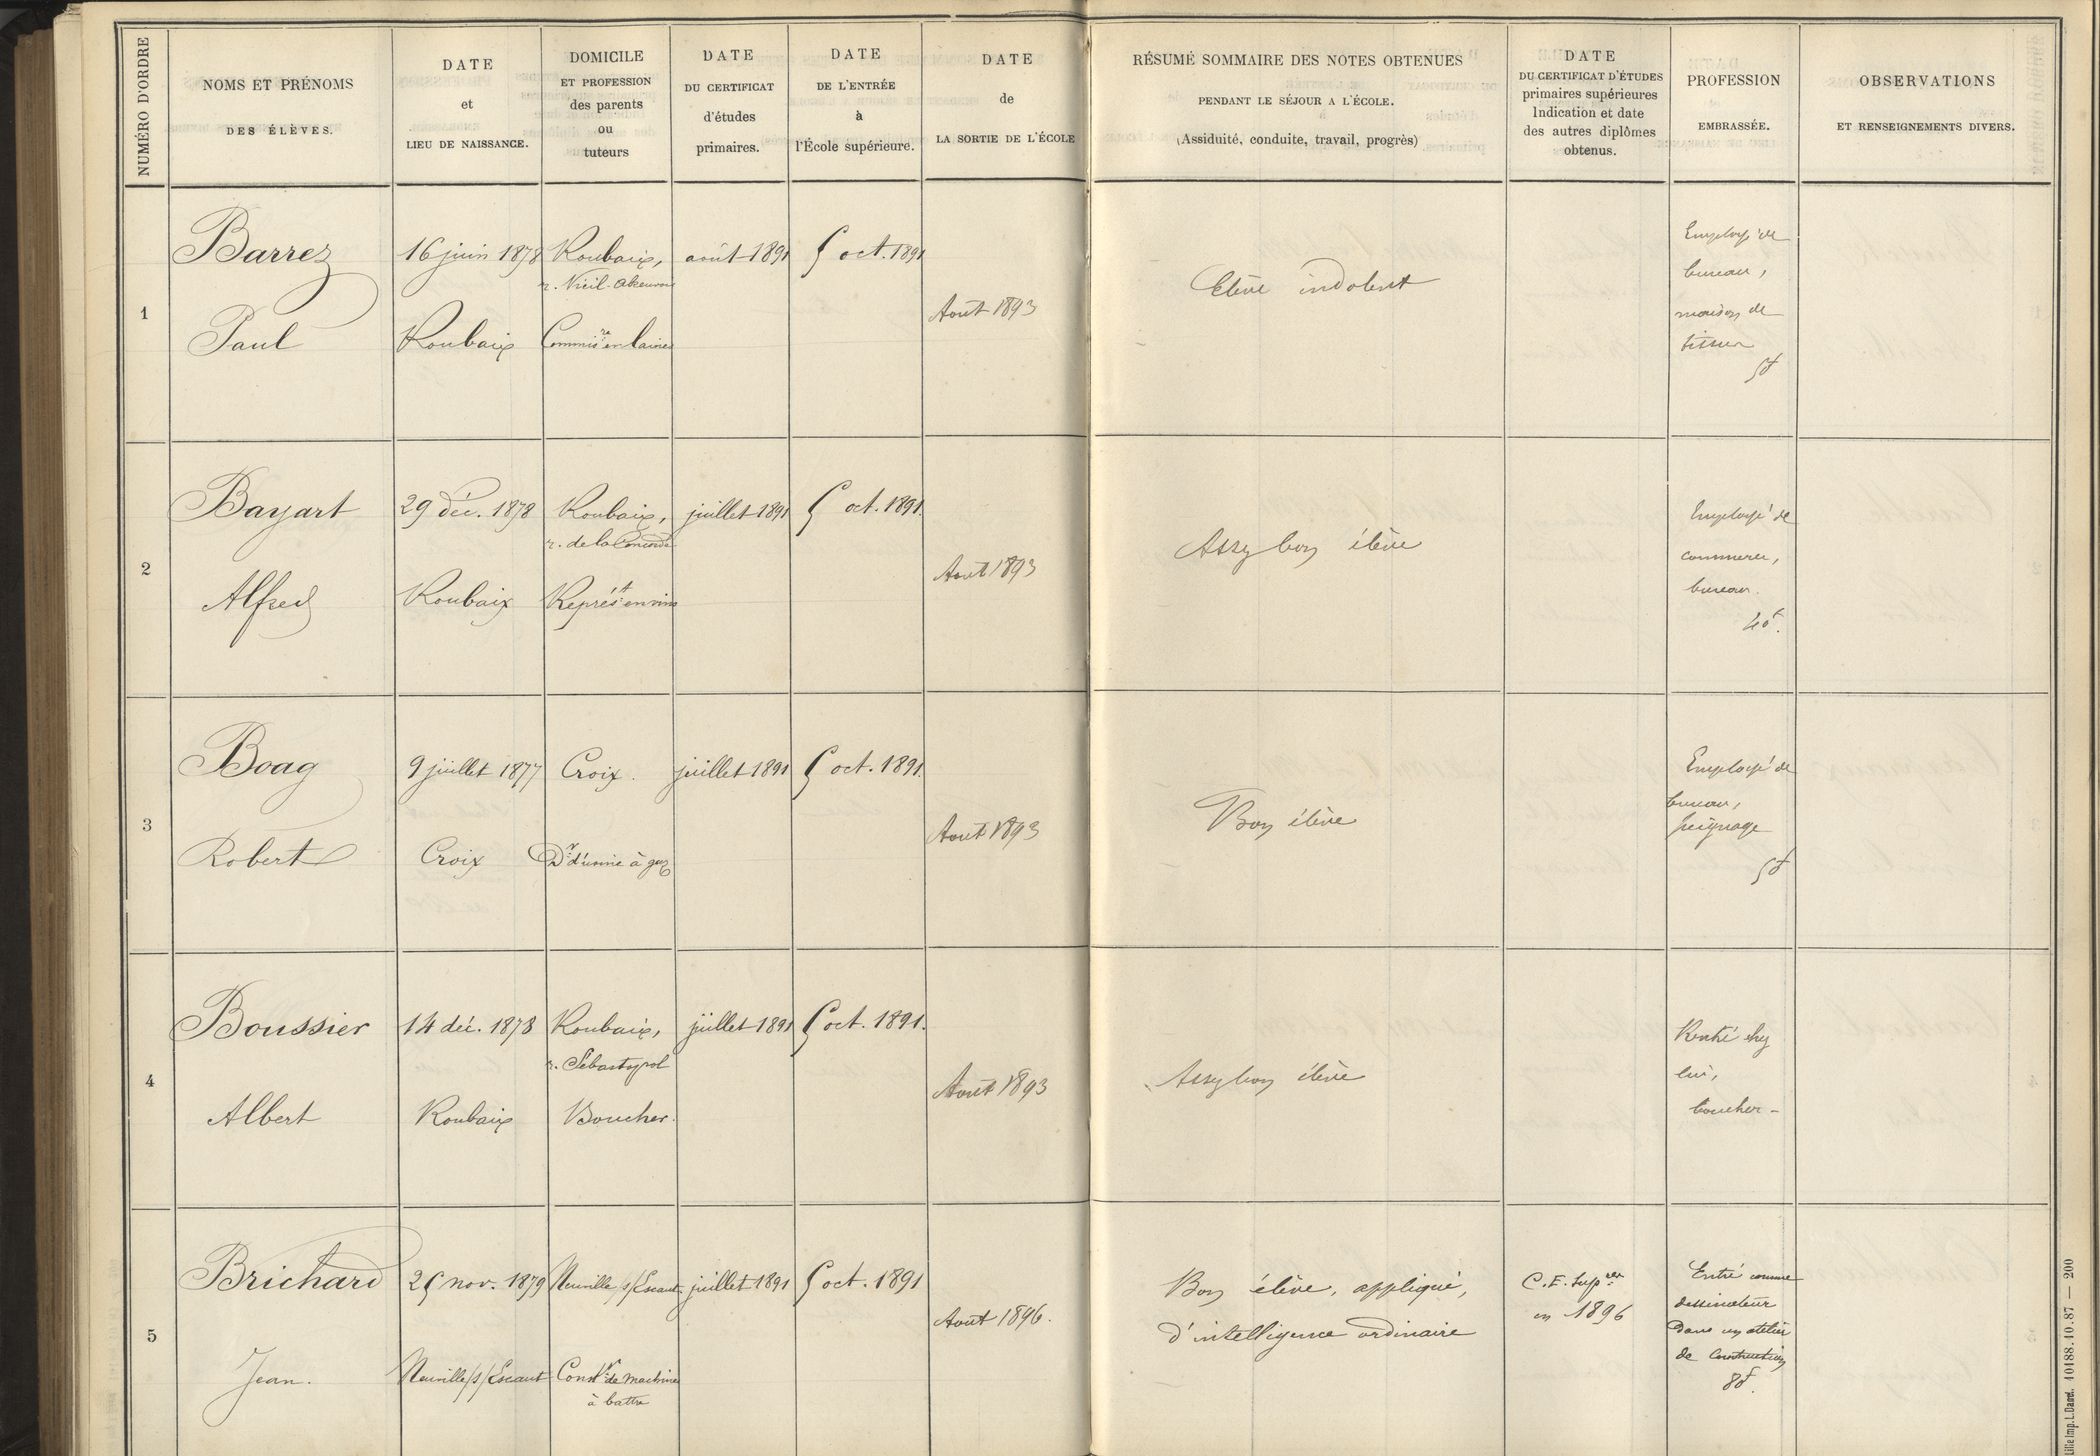 NUMÉRO D'ORDRE
NOMS ET PRÉNOMS
DES ÉLÈVES.
DATE
et
LIEU DE NAISSANCE.
DOMICILE
ET PROFESSION
des parents
ou
tuteurs
DATE
DU CERTIFICAT
d'études
primaires.
DATE
DE L'ENTRÉE
à
l'École supérieure.
DATE
de
LA SORTIE DE L'ÉCOLE
RÉSUMÉ SOMMAIRE DES NOTES OBTENUES
PENDANT LE SÉJOUR A L'ÉCOLE.
(Assiduité, conduite, travail, progrès)
DATE
DU CERTIFICAT D'ÉTUDES
primaires supérieures
Indication et date
des autres diplômes
obtenus.
PROFESSION
EMBRASSÉE.
OBSERVATIONS
ET RENSEIGNEMENTS DIVERS.
1
Barrez
Paul
16 juin 1878
Roubaix
Roubaix,
r. Vieil-Abreuvoir
Commis.re en laines
août 1891
5 oct. 1891
Août 1893
Elève indolent
Employé de
bureau,
maison de
tissus
5f
2
Bayart
Alfred
29 déc. 1878
Roubaix
Roubaix,
r. de la Concorde
Représ.t en vins
juillet 1891
5 oct. 1891.
Août 1893
Assez bon élève
Employé de
commerce,
bureau.
40f.
3
Boag
Robert
9 juillet 1877
Croix
Croix.
D.r d'usine à gaz
juillet 1891
5 oct. 1891.
Août 1893
Bon élève
Employé de
bureau,
peignage
5f
4
Boussier
Albert
14 déc. 1878
Roubaix
Roubaix,
r. Sébastopol
Boucher.
juillet 1891
5 oct. 1891.
Août 1893
Assez bon élève
Rentré chez
lui,
boucher -
5
Brichard
Jean.
25 nov. 1879
Neuville/s/Escaut
Neuville s/Escaut
Const.r de machines
à battre
juillet 1891
5 oct. 1891
Août 1896.
Bon élève, appliqué,
d'intelligence ordinaire
C. E. Sup.res
en 1896
Entré comme
dessinateur
dans un atelier
de construction
80f.
Lille Imp. L. Danel. 10188.10.87 — 200